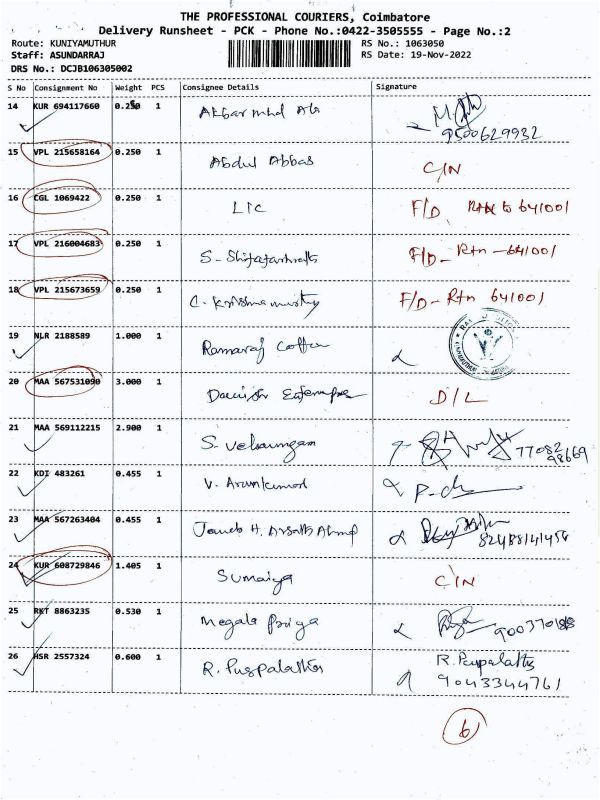 THE PROFESSIONAL COURIERS, Coimbatore
Delivery Runsheet - PCK - Phone No.:0422-3505555 - Page No.:2
Route: KUNIYAMUTHUR RS No.: 1063050
Staff: ASUNDARRAJ RS Date: 19-Nov-2022
DRS No.: DCJB106305002
S No Consignment No Weight PCS Consignee Details Signature
14 KUR 694117660 0.250 1 Akbar
9500629932
15 VPL 215658164 0.250 1 Abdul Abbas C/N
16 CGL 1069422 0.250 1 LIC F/D Rtn to 641001
17 VPL 216004683 0.250 1 S. F/D - Rtn - 641001
18 VPL 215673659 0.250 1 C. F/D - Rtn 641001
19 NLR 2188589 1.000 1 Ramaraj Cotton
20 MAA 567531090 3.000 1 D/L
21 MAA 569112215 2.900 1 S. 77082
98669
22 KDI 483261 0.455 1 V. Arunkumar
23 MAA 567263404 0.455 1 H.
24 KUR 608729846 1.405 1 Sumaiya C/N
25 RKT 8863235 0.530 1 Megala Priya
26 HSR 2557324 0.600 1 R. Puspalatha R. Puspalatha
9043344761
6